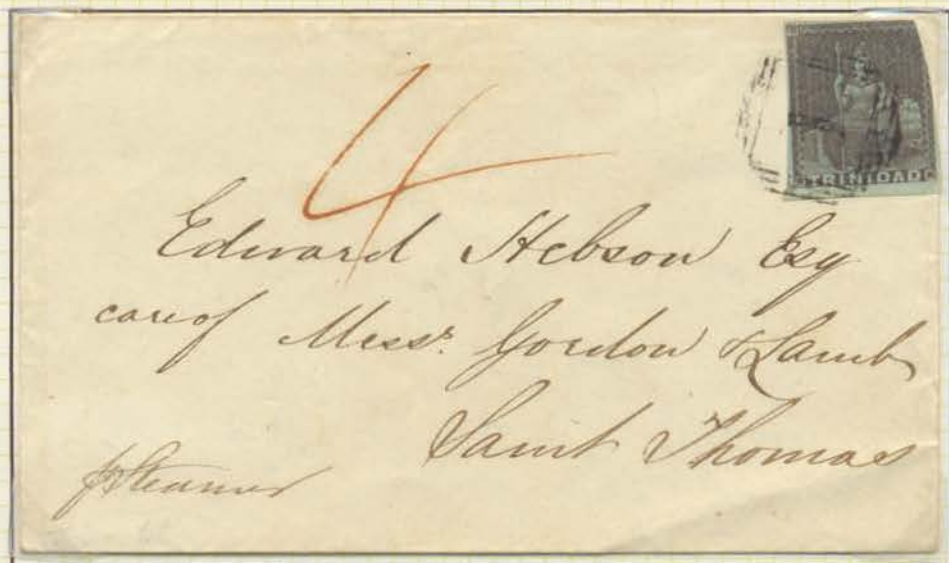 TRINIDAD
4
Edward Hebson Esq
care of Messrs. Gordon & Lamb
Saint Thomas
p Steamer